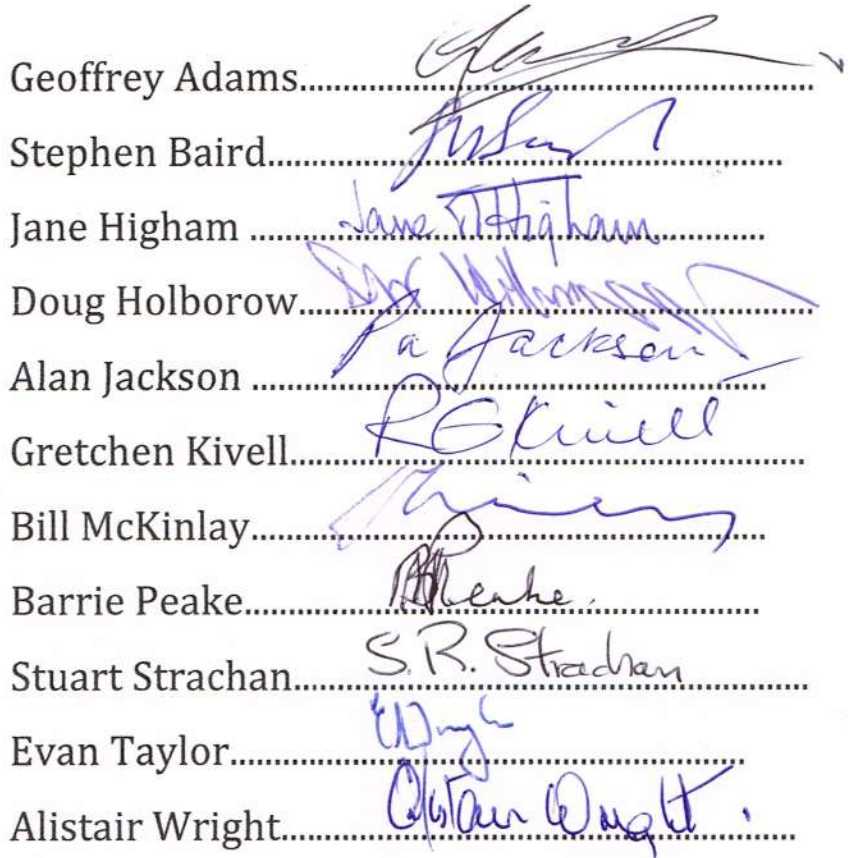 Geoffrey Adams..........
Stephen Baird..........
Jane Higham .......... Jane Higham
Doug Holborow..........
Alan Jackson .......... Pa Jackson
Gretchen Kivell.......... RGKivell
Bill McKinlay..........
Barrie Peake.......... Peake.
Stuart Strachan.......... S.R. Strachan
Evan Taylor..........
Alistair Wright.......... Alistair Wright.